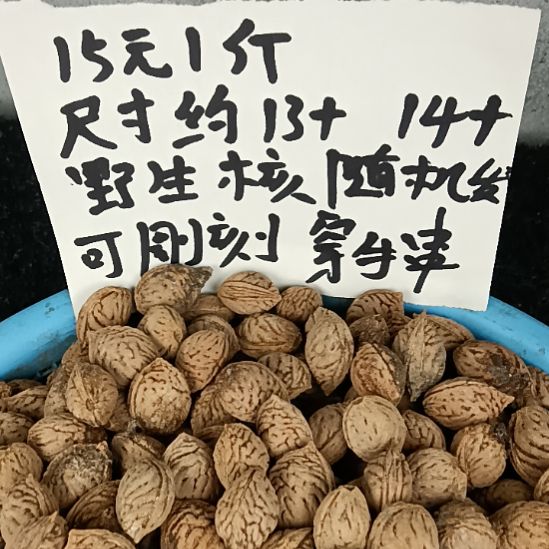 15元1斤
尺寸约13+ 14+
野生核随机发
可雕刻穿手串